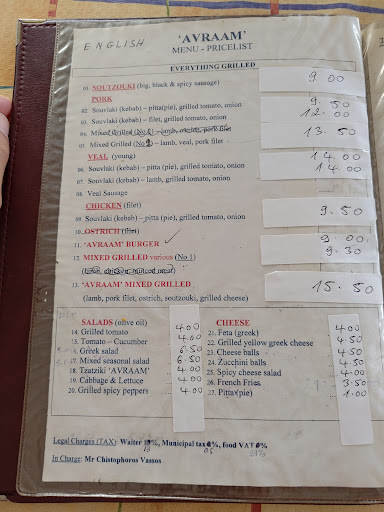 ENGLISH
'AVRAAM'
MENU - PRICELIST
EVERYTHING GRILLED
01. SOUTZOUKI (big, black & spicy sausage) 9.00
PORK
02. Souvlaki (kebab) – pitta(pie), grilled tomato, onion 9.50
03. Souvlaki (kebab) – filet, grilled tomato, onion 12.00
04. Mixed Grilled (No 6) – lamb, pork filet
05. Mixed Grilled (No ) – lamb, veal, pork filet 13.50
VEAL (young)
06. Souvlaki (kebab) – pitta (pie), grilled tomato, onion 14.00
07. Souvlaki (kebab) – lamb, grilled tomato, onion 14.00
08. Veal Sausage
CHICKEN (filet)
09. Souvlaki (kebab) – pitta (pie), grilled tomato, onion 9.50
10. OSTRICH (filet)
11. 'AVRAAM' BURGER ✓ 9.00
12. MIXED GRILLED various (No 1) 9.30
(lamb, chicken minced meat)
13. 'AVRAAM' MIXED GRILLED 15.50
(lamb, pork filet, ostrich, soutzouki, grilled cheese)
SALADS (olive oil)
14. Grilled tomato 4.00
15. Tomato – Cucumber 4.00
16. Greek salad 6.50
17. Mixed seasonal salad 6.50
18. Tzatziki 'AVRAAM' 4.00
19. Cabbage & Lettuce 4.00
20. Grilled spicy peppers 4.00
CHEESE
21. Feta (greek) 4.00
22. Grilled yellow greek cheese 4.50
23. Cheese balls 4.50
24. Zucchini balls 4.50
25. Spicy cheese salad 4.00
26. French Fries 3.50
27. Pitta(pie) 1.00
Legal Charges (TAX): Waiter %, Municipal tax %, food VAT %
13 0.5 24%
In Charge: Mr Chistophoros Vamos